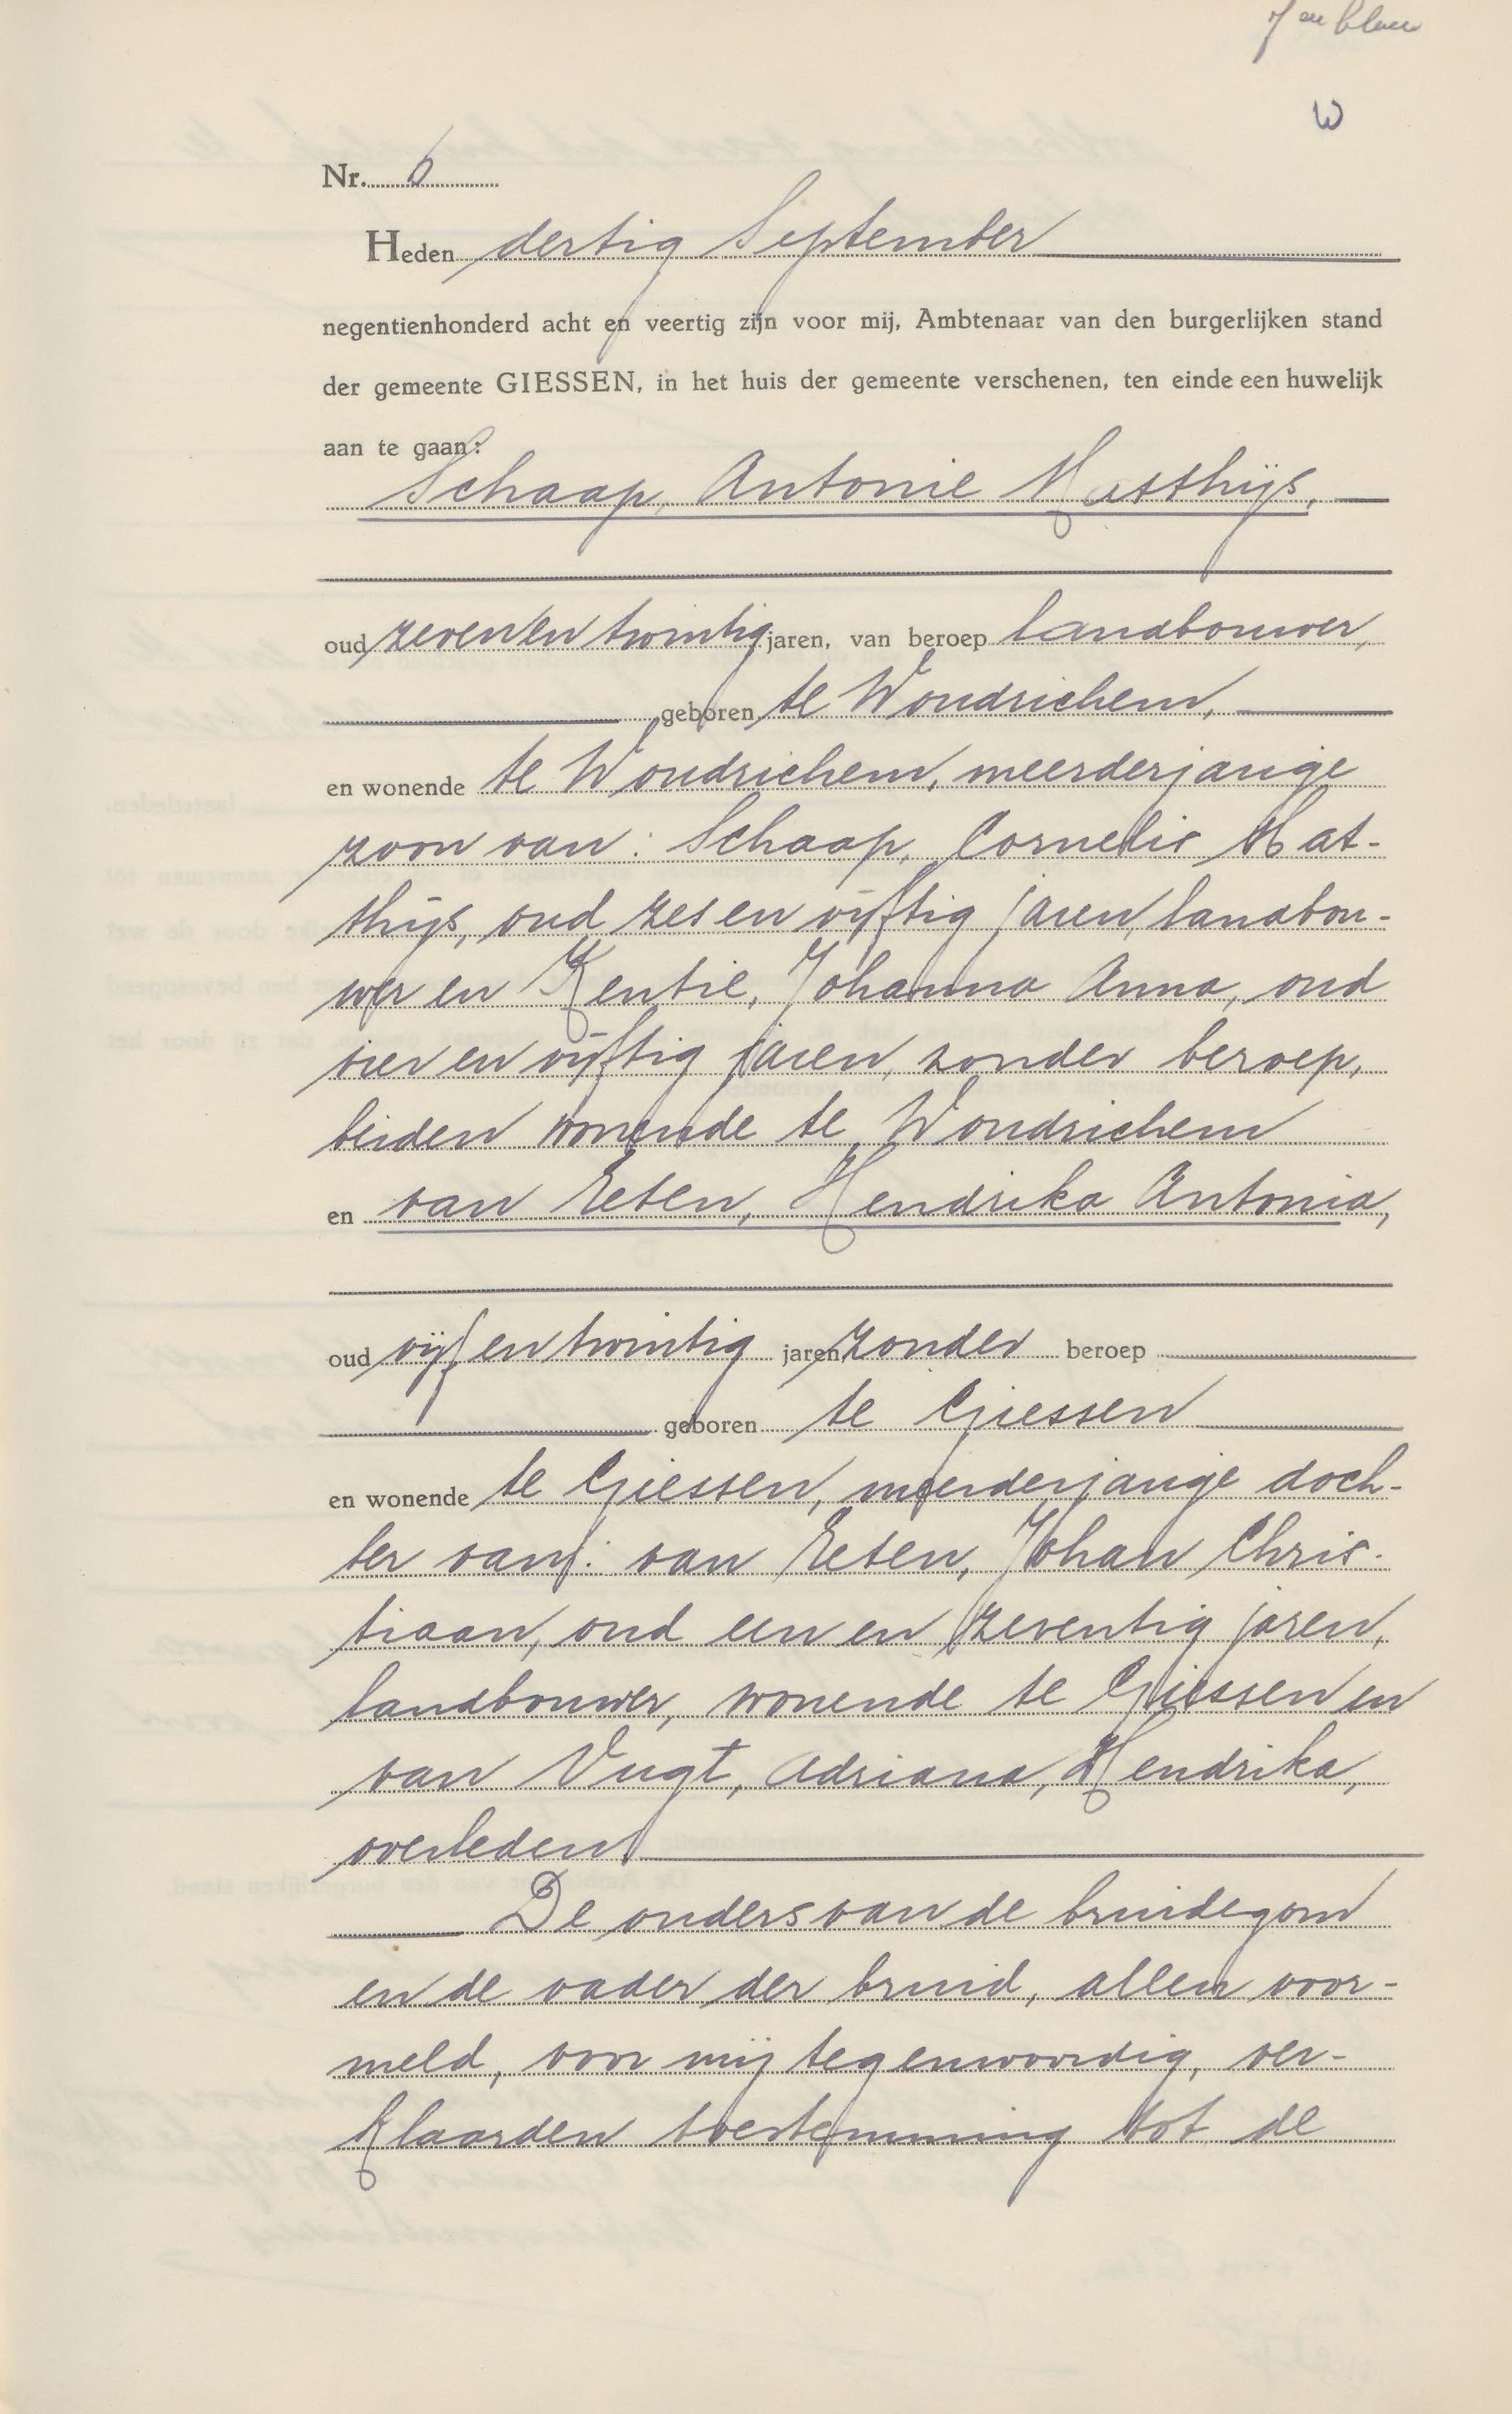 W
Nr. 6
Heden dertig September
negentienhonderd acht en veertig zijn voor mij, Ambtenaar van den burgerlijken stand
der gemeente GIESSEN, in het huis der gemeente verschenen, ten einde een huwelijk
aan te gaan:
Schaap, Antonie Matthijs,
oud zeven en twintig jaren, van beroep landbouwer,
geboren te Woudrichem,
en wonende te Woudrichem, meerderjarige
zoon van: Schaap, Cornelis Mat-
thijs, oud zes en vijftig jaren, landbou-
wer en Kentie, Johanna Anna, oud
vier en vijftig jaren, zonder beroep,
beiden wonende te Woudrichem
en van Eeten, Hendrika Antonia,
oud vijf en twintig jaren, zonder beroep
geboren te Giessen
en wonende te Giessen, meerderjarige doch-
ter van: van Eeten, Johan Chris-
tiaan, oud een en zeventig jaren,
landbouwer, wonende te Giessen en
van Vugt, Adriana, Hendrika,
overleden
De ouders van de bruidegom
en de vader der bruid, allen voor-
meld, voor mij tegenwoordig, ver-
klaarden toestemming tot de